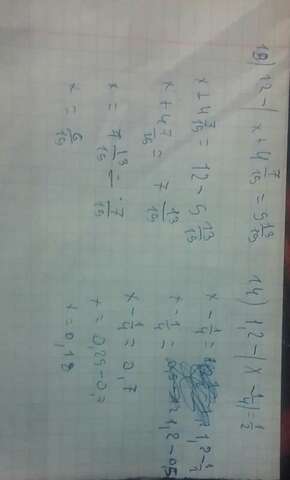 13) 12-(x+4 7/15=5 13/15
x+4 7/15 = 12-5 13/15
x+4 7/15 = 7 13/15
x = 7 13/15 - 7/15
x = 6/15
14) 1,2-(x-1/4)=1/2
x-1/4 = 1,2-1/2
x-1/4 = 1,2-0,5
x-1/4 = 0,7
x = 0,25-0,7
x = 0,18